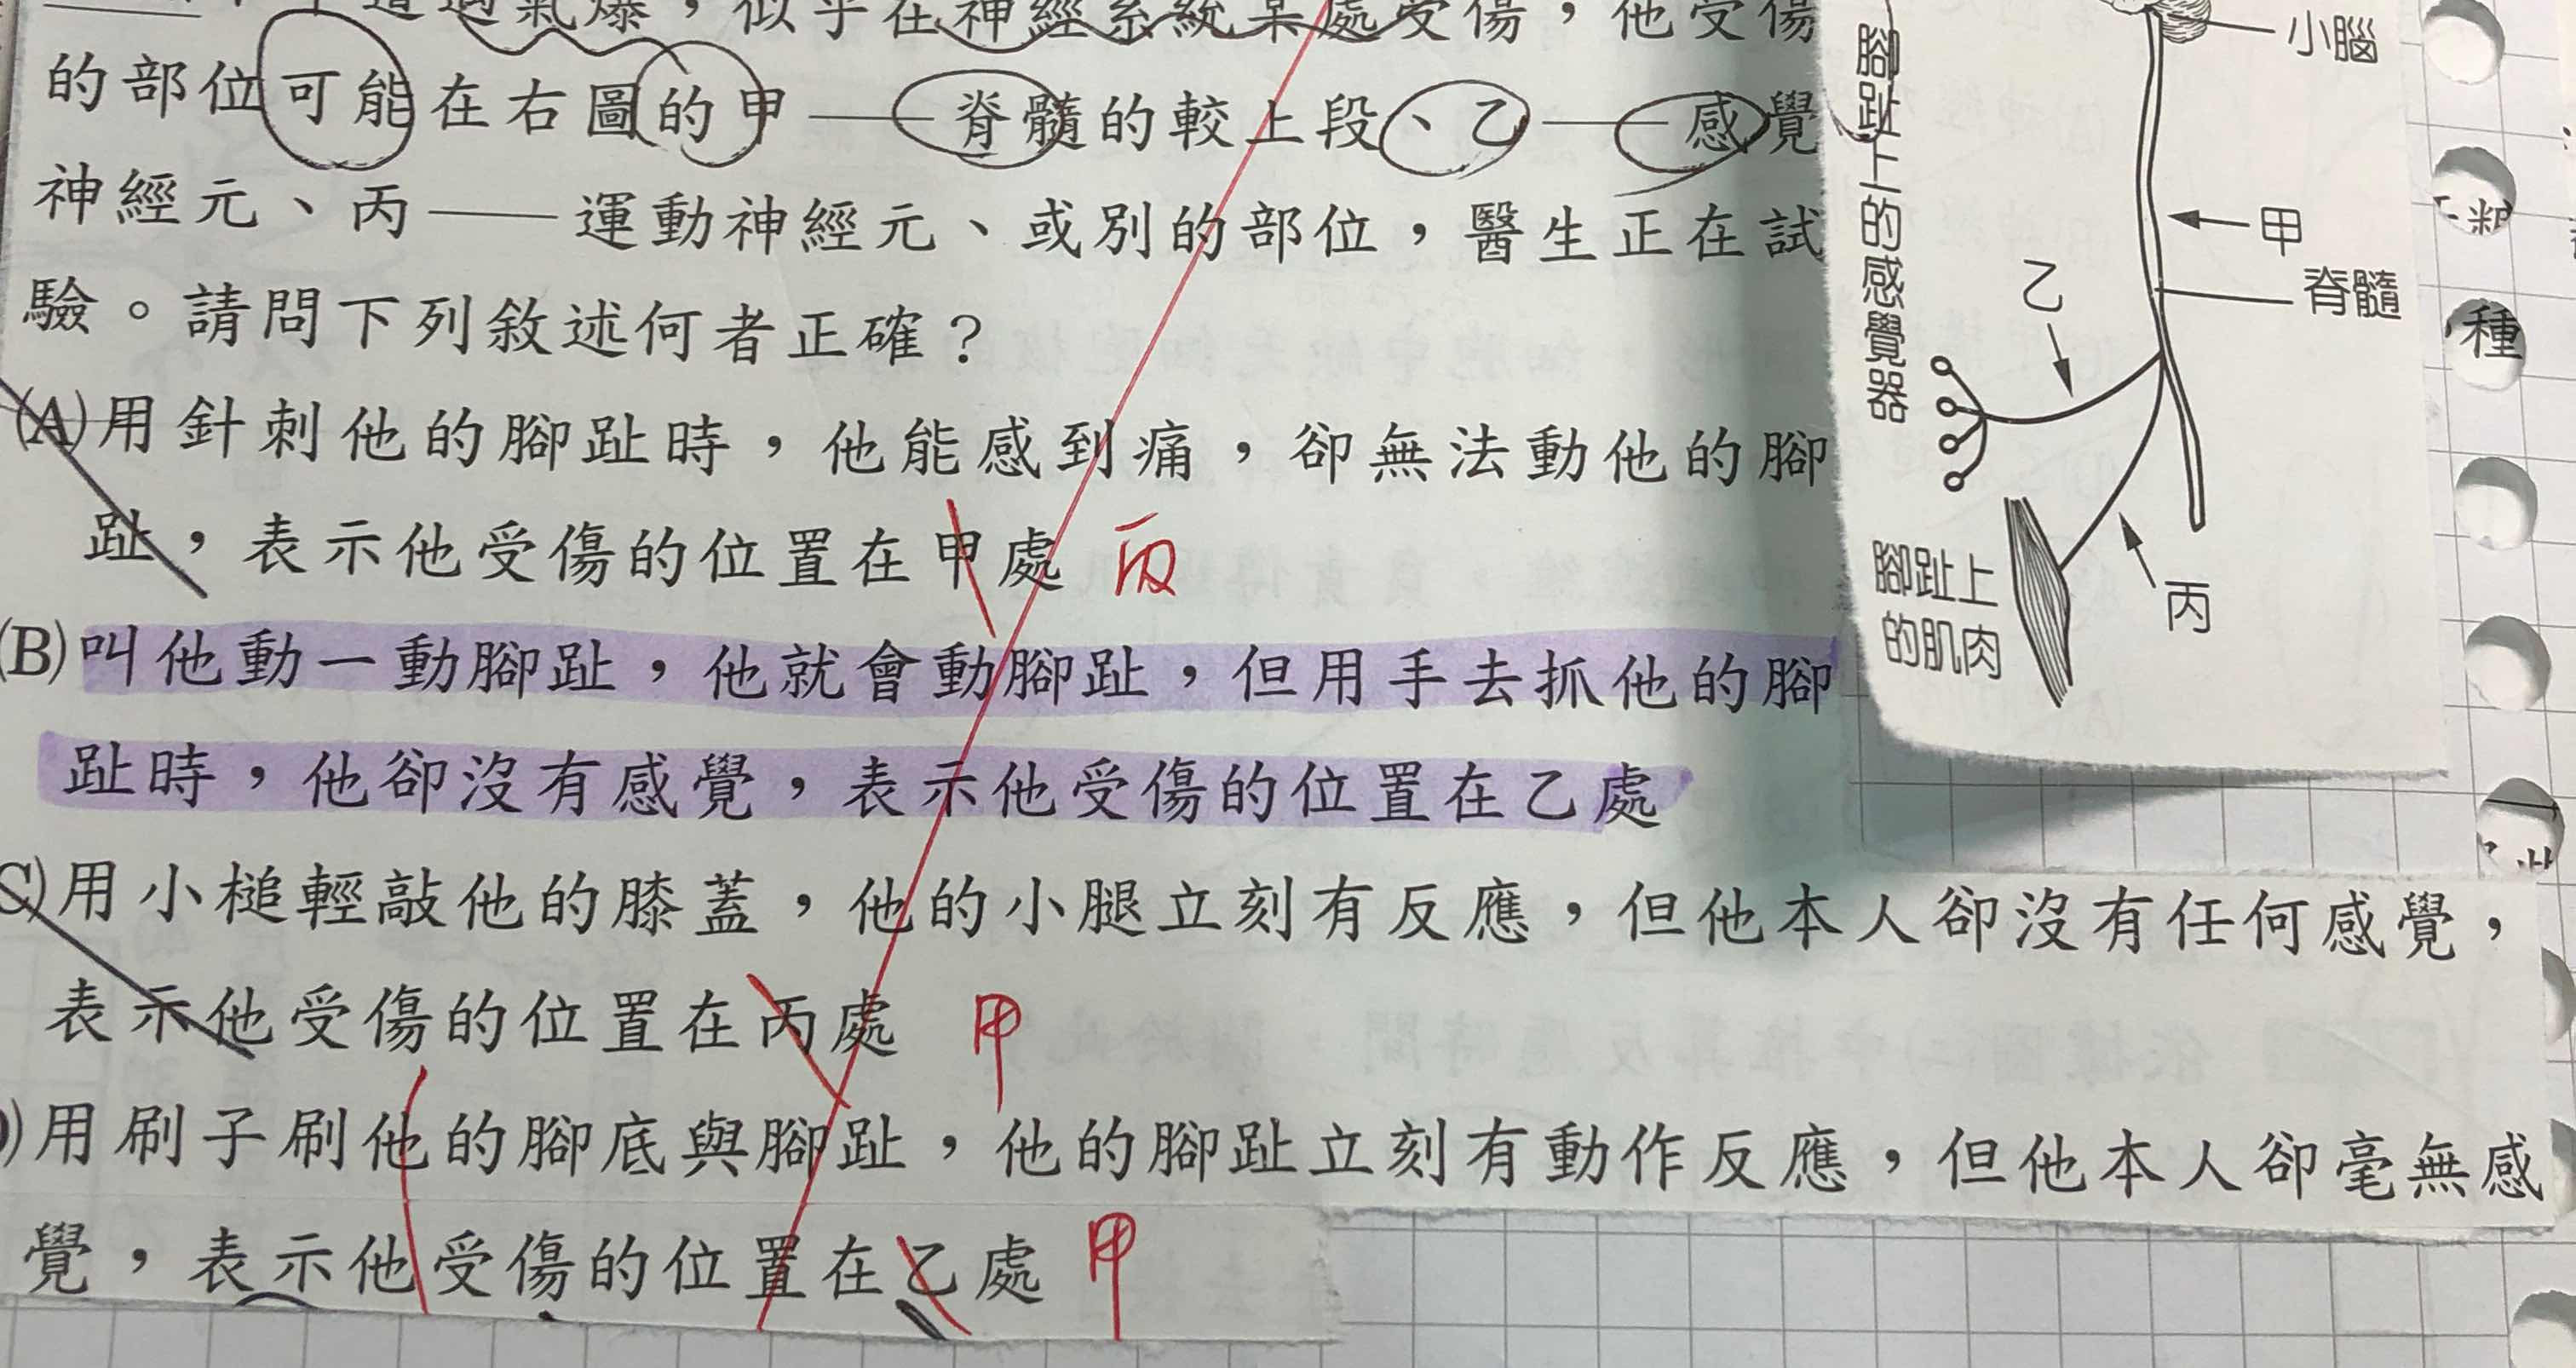 遭遇氣爆，似乎在神經系統某處受傷，他受傷
的部位可能在右圖的甲——脊髓的較上段、乙——感覺
神經元、丙——運動神經元、或別的部位，醫生正在試
驗。請問下列敘述何者正確？
(A)用針刺他的腳趾時，他能感到痛，卻無法動他的腳
趾，表示他受傷的位置在甲處 丙
(B)叫他動一動腳趾，他就會動腳趾，但用手去抓他的腳
趾時，他卻沒有感覺，表示他受傷的位置在乙處
C)用小槌輕敲他的膝蓋，他的小腿立刻有反應，但他本人卻沒有任何感覺，
表示他受傷的位置在丙處 甲
)用刷子刷他的腳底與腳趾，他的腳趾立刻有動作反應，但他本人卻毫無感
覺，表示他受傷的位置在乙處 甲
小腦
腳趾上的感覺器
甲
乙
脊髓
丙
腳趾上
的肌肉
種